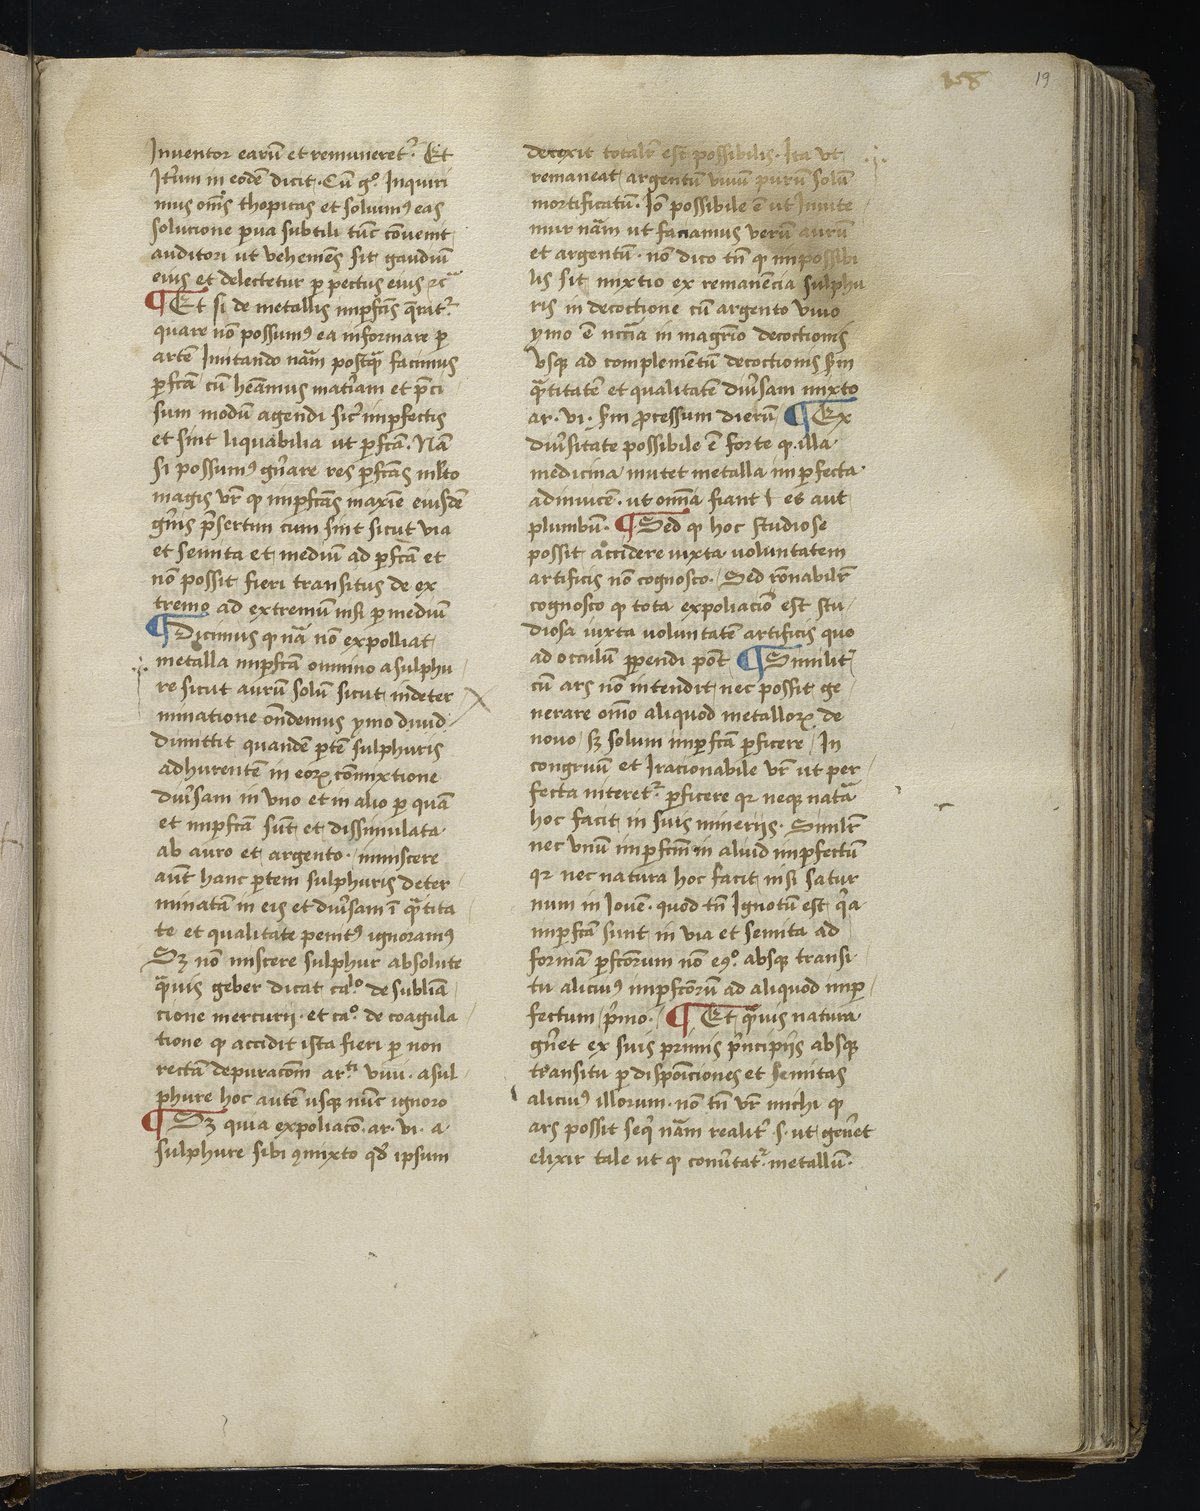 19
Inventor earū et remuneret᷑. Et
It᷑um in eodē dicit. Cū gͦ. Inquiri
mus om̄s thopicas et soluimꝰ eas
solucione pͣua subtili tūc cōuenit
auditori ut vehemēs sit gaudiū
eius et delectetur ꝑ pectus eius ⁊cͣ
¶ Et si de metallis imꝑfcīs q̄rat᷑.
quare nō possumꝰ ea informare ꝑ
artē Imitando nāʒ postꝙͣ facimus
ꝑfcāʒ cū heāmus mat᷑iam et p̄ci
sum modū agendi sic᷑ imperfectis
et sint liquabilia ut ꝑfcā. Nā
Si possumꝰ gn̄are res ꝑfcās ml̄to
magis vr̄ ꝙ imꝑfcās maxīe eiusdē
gn̄is p̄sertim cum sint sicut via
et semita et mediū ad ꝑfcā et
nō possit fieri transitus de ex
tremo ad extremū nisi ꝑ mediū
¶ Dicimus ꝙ nāʒ nō expolliat
metalla imꝑfcā omnino a sulphu
re sicut aurū solū sicut indeter
minatione on̄demus ymo diuid
dimittit quandē ꝑtē sulphuris
adhurentē in eorꝝ cōmixtione
diu᷑sam in vno et in alio ꝑ quā
et imꝑfcā sūt et dissimulata
ab auro et argento. inmiscere
aūt hanc ꝑtem sulphuris deter
minatā in eis et diu᷑sam ī q̄ntita
te et qualitate penitꝰ ignoramꝰ
Sꝫ nō miscere sulphur absolute
q̄uis geber dicat caͦ. de sublīa
cione mercurii. et caͦ. de coagula
tione ꝙ accidit ista fieri ꝑ non
rectā depuracōm ar.ti viui. a sul
phure hoc autē usqꝫ nūc ignoro
¶ Sꝫ quia expoliacō. ar. vi. a
sulphure sibi ꝯmixto qd̄ ipsum
detexit totalr̄ est possibilis. Ita vt
remaneat argentū viuū purū solū
mortificatū. Iō possibile ē ut Inuite
mur nāʒ ut faciamus verū aurū
et argentū. nō dico tn̄ ꝙ impossibi
lis sit mixtio ex remanēcia sulphu
ris in decoctione cū argento viuo
ymo ē nccīa in magr̄io decoctionis
Vsqꝫ ad complementū decoctionis sm̄
q̄ntitatē et qualitatē diu᷑sam mixto
ar. vi. sm̄ ꝓcessum dierū ¶ Ex
diu᷑sitate possibile ē forte ꝙ illa
medicina mutet metalla imꝑfecta
adinuicē. ut omīa fiant l es aut
plumbū. ¶ Sed ꝙ hoc studiose
possit accidere iuxta voluntatem
artificis nō cognosco. Sed rōnabilr̄
cognosco ꝙ tota expoliacio est stu
diosa iuxta voluntatē artificis quo
ad occulū ꝓpendi pōt ¶ Similit᷑
cū ars nō intendit nec possit ge
nerare om̄o aliquod metallorꝝ de
nouo sꝫ solum imꝑfcā ꝑficere In
congruū et Iracionabile vr̄ ut per
fecta niteret᷑ ꝑficere qꝛ neqꝫ natāʒ
hoc facit in suis mineriis. Similr̄
nec vnū imꝑfcm̄ in aliud imꝑfectū
qꝛ nec natura hoc facit nisi satur
num in Iouē. quod tn̄ Ignotū est q᷑a
imꝑfcā sunt in via et semita ad
formā ꝑfcōrum nō eqͦ. absqꝫ transi
tu aliciuꝰ imꝑfcōrū ad aliquod imꝑ
fectum p᷑mo. ¶ Et q̄uis natura
gn̄et ex suis primis p᷑ncipiis absqꝫ
transitu ꝑ disposiciones et semitas
aliciuꝰ illorum. nō tn̄ vr̄ michi ꝙ
ars possit seq᷑ nāʒ realit᷑ .s. ut gen̄et
elixir tale ut ꝙ conu᷑tat᷑ metallū.